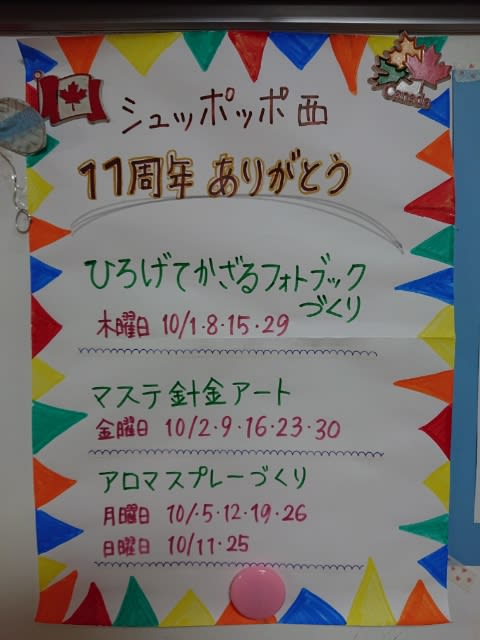 Canada
シュッポッポ西
11周年 ありがとう
ひろげてかざるフォトブック
づくり
木曜日 10/1・8・15・29
マステ針金アート
金曜日 10/2・9・16・23・30
アロマスプレーづくり
月曜日 10/・5・12・19・26
日曜日 10/11・25